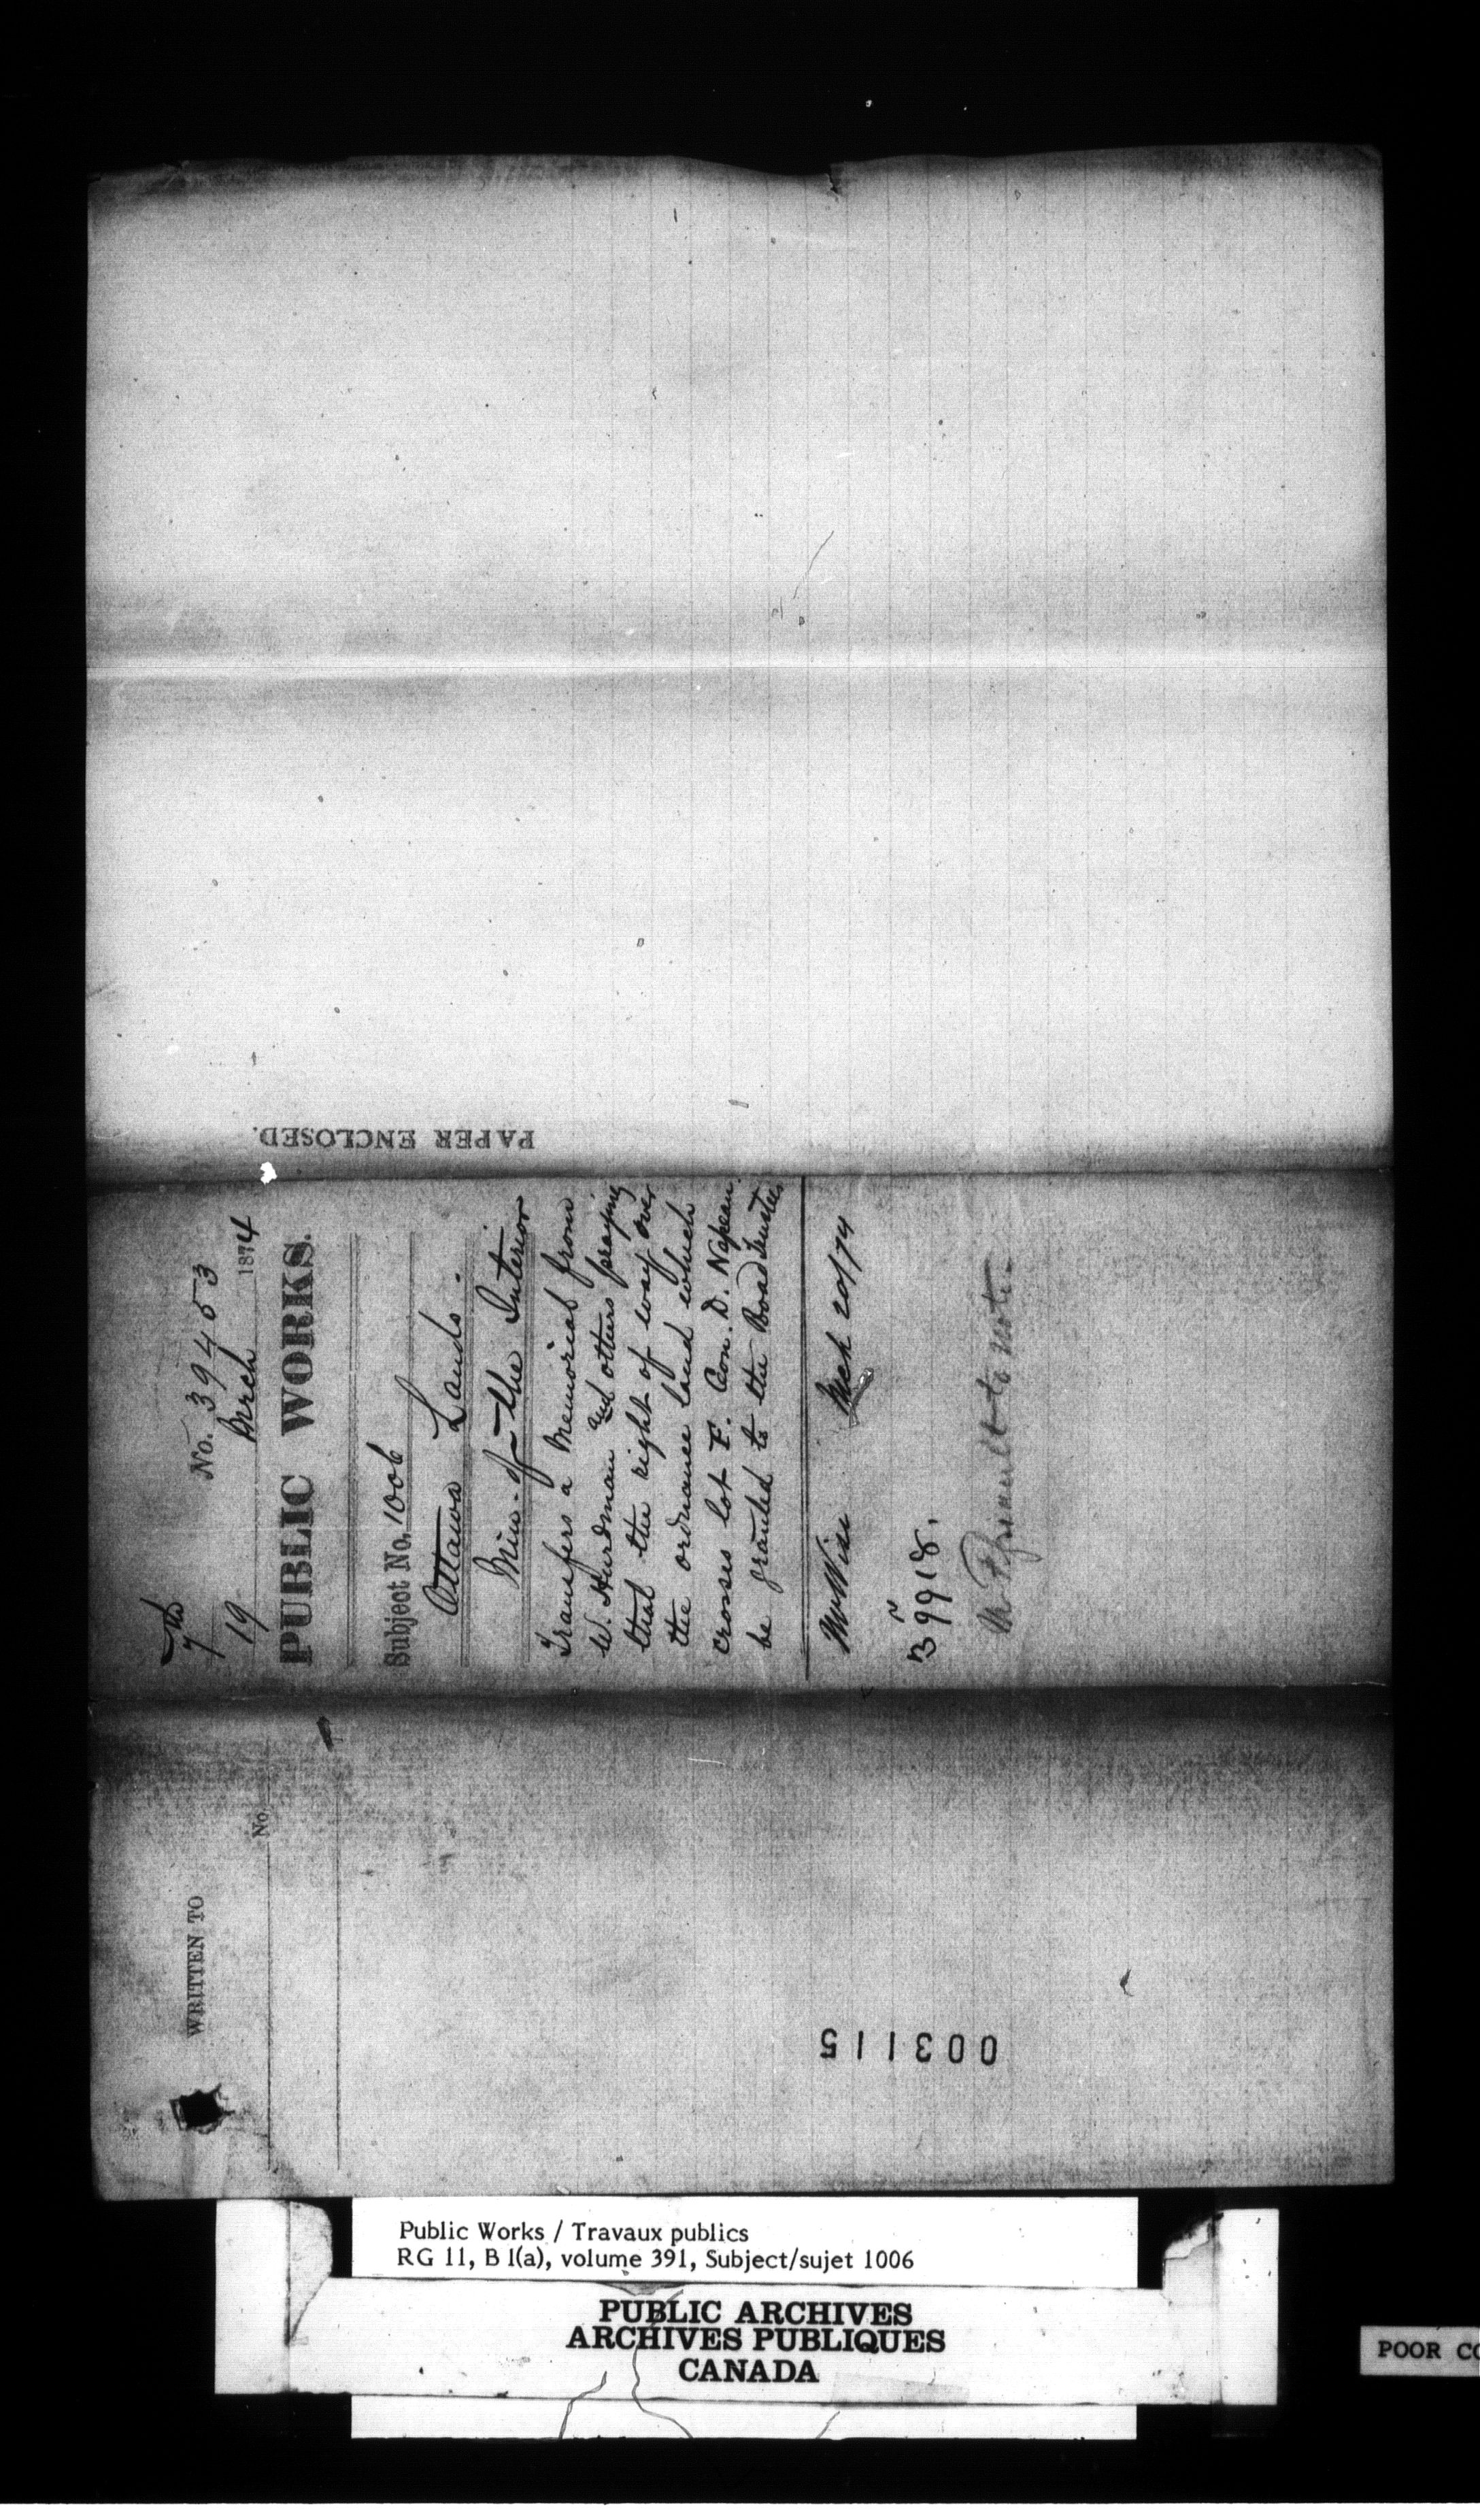 7th
No. 39453
19 Mrch 1874
PUBLIC WORKS.
Subject No. 1006
Ottawa Lands.
Min. of the Interior
Transfers a Memorial from
W. Hurdman and others praying
that the right of way over
the ordnance land which
crosses lot F. Con. D. Nepean.
be granted to the Road Trustees
Mch 20/74
39918.
to note
PAPER ENCLOSED.
WRITTEN TO
No.
003115
Public Works / Travaux publics
RG 11, B 1(a), volume 391, Subject/sujet 1006
PUBLIC ARCHIVES
ARCHIVES PUBLIQUES
CANADA
POOR CO